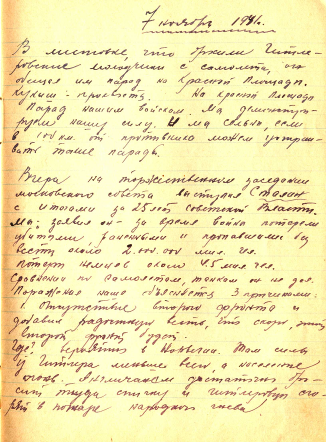 7 ноября 1941.
В листовке что бросили Гитле-
ровские молодчики с самолета, он
обещал им парад на Красной Площади.
Кукиш - прохвость. На красной площади
Парад нашим войскам. Мы демонстри-
руем нашу силу. И мы сильны, если
в 100 км. от противника можем устраи-
вать такие парады.
Вчера на торжественном заседании
московского совета выступил Сталин
с итогами за 25 лет Советской Власти.
Мы, заявил он - за время войны потеряли
убитыми, ранеными и пропавшими без
вести около 2.000.000 чел.
Потери немцев около 4,5 мил. чел.
Сравнения по самолетам, танкам он не дал.
Поражение наше объясняется 3 причинами:
Отсутствие второго фронта и
добавил радостную весть, что скоро этот
второй фронт будет.
Где? Вероятно в Норвегии. Там силы
у Гитлера меньше всего, а население
Англичанам достаточно бро-
сить туда спичку и гитлеровцы сго-
рят в пожаре народного гнева.